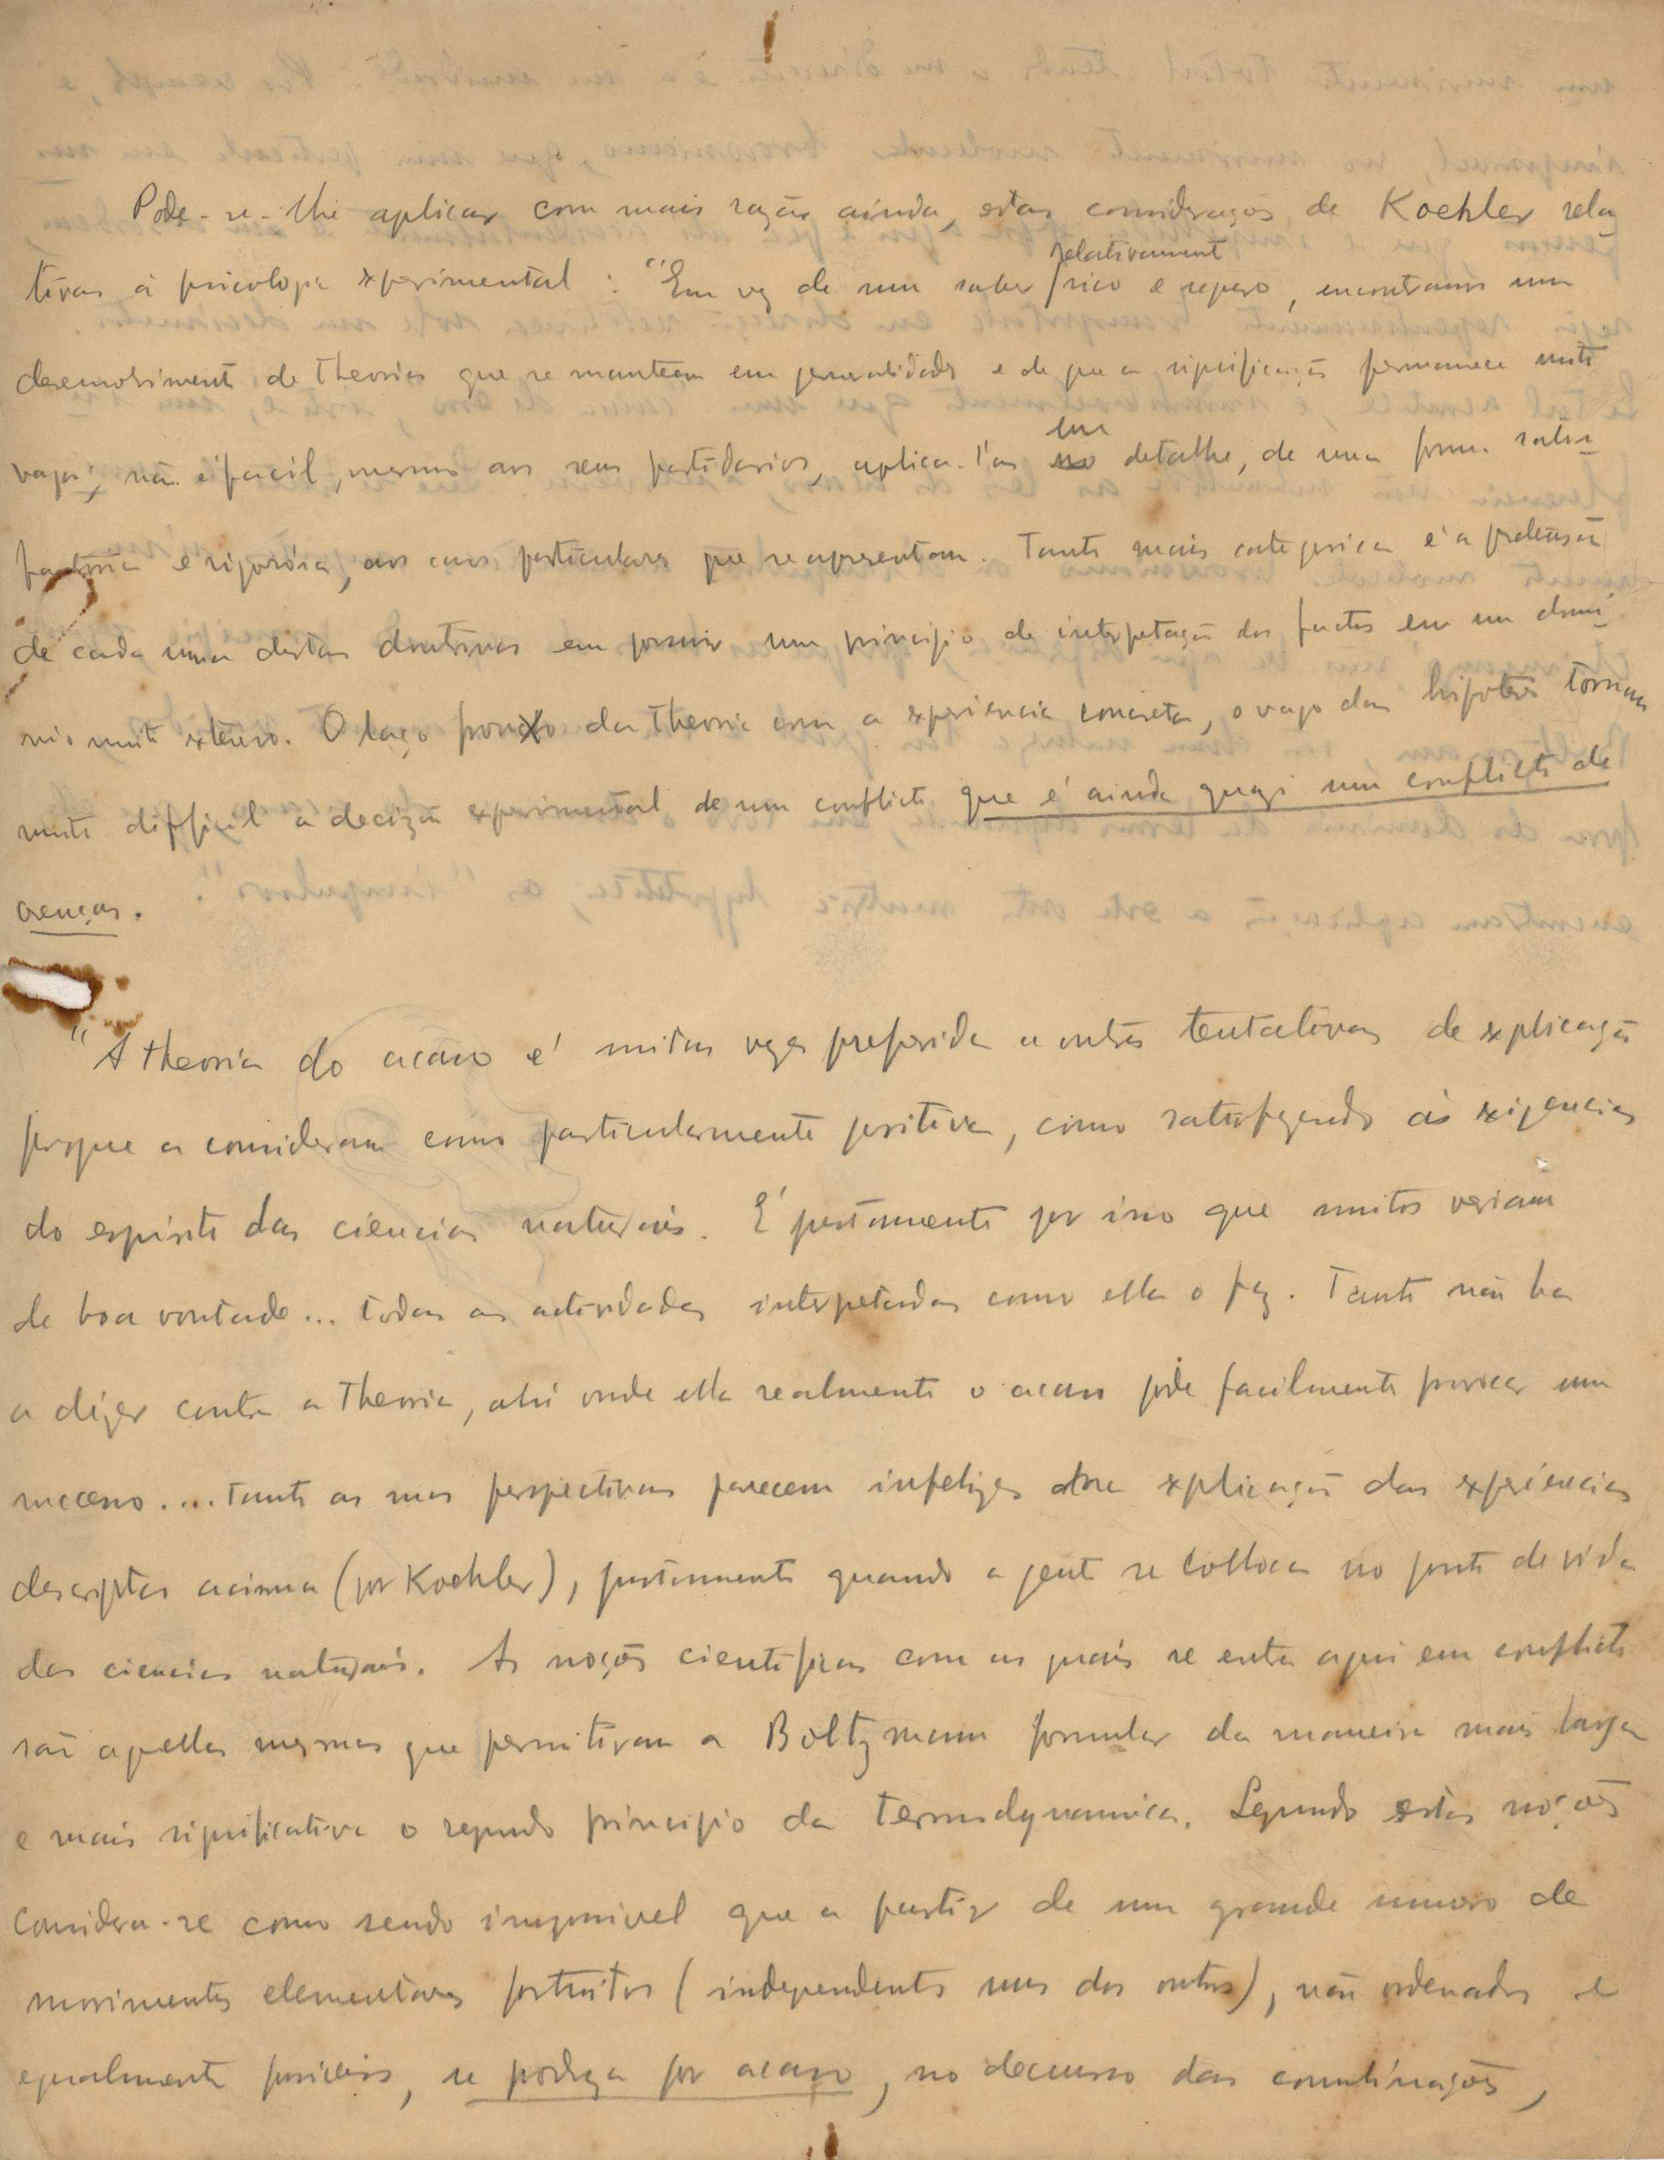 Pode-se-lhe aplicar com mais razão ainda, estas considerações de Koehler rela
tivas á psicologia experimental : "Em vez de um saber relativamente rico e seguro, encontramos um
desenvolvimento de theorias que se manteem em generalidades e de que a significação permanece muito
vaga; não é facil, mesmo aos seus partidarios, aplica-l'as em detalhe, de uma forma satis
factoria e rigorosa, aos casos particulares que se apresentam. Tanto mais categorica é a pretensão
de cada uma destas doutrinas em possuir um principio de interpetação dos factos em um domi
nio muito extenso. O laço frouxo da theoria com a experiencia concreta, o vago das hipoteses tornam
muito difficil a decizão experimental de um conflicto que é ainda quazi um conflicto de
crenças.
"A theoria do acaso é muitas vezes preferida a outras tentativas de explicação
porque a consideram como particularmente positiva, como satisfazendo ás exigencias
do espirito das ciencias naturais. É justamente por isso que muitos veriam
de boa vontade... todas as actividades interpetadas como ella o faz. Tanto não ha
a dizer contra a theoria, ahi onde ella realmente o acaso pode facilmente provocar um
successo.... tanto as suas perspectivas parecem infelizes na explicação das experiencias
descriptas acima (por Koehler), justamente quando a gente se colloca no ponto de vista
das ciencias naturais. As noções cientificas com as quais se entra aqui em conflicto
são aquellas mesmas que permitiram a Boltzmann formular da maneira mais larga
e mais significativa o segundo principio da termodynamica. Segundo estas noções
considera-se como sendo impossivel que a partir de um grande numero de
movimentos elementares fortuitos (independentes uns dos outros), não ordenados e
egualmente possiveis, se produza por acaso, no decurso das combinações,